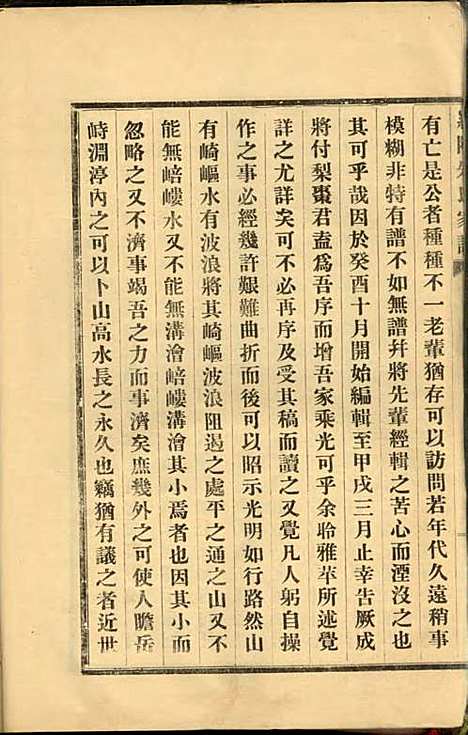 有亡是公者種種不一老輩猶存可以訪問若年代久遠稍事
模糊非特有譜不如無譜幷將先輩經輯之苦心而湮沒之也
其可乎哉因於癸酉十月開始編輯至甲戌三月止幸告厥成
將付梨棗君盍爲吾序而增吾家乘光可乎余聆雅苹所述覺
詳之尤詳矣可不必再序及受其稿而讀之又覺凡人躬自操
作之事必經幾許艱難曲折而後可以昭示光明如行路然山
有崎嶇水有波浪將其崎嶇波浪阻遏之處平之通之山又不
能無嵱嶁水又不能無溝澮嵱嶁溝澮其小焉者也因其小而
忽略之又不濟事竭吾之力而事濟矣庶幾外之可使人瞻岳
峙淵渟內之可以卜山高水長之永久也竊猶有議之者近世